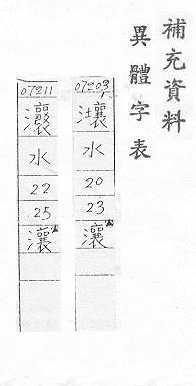 補充資料
異體字表
07203
水
20
23
瀼
07211
水
22
25
瀼